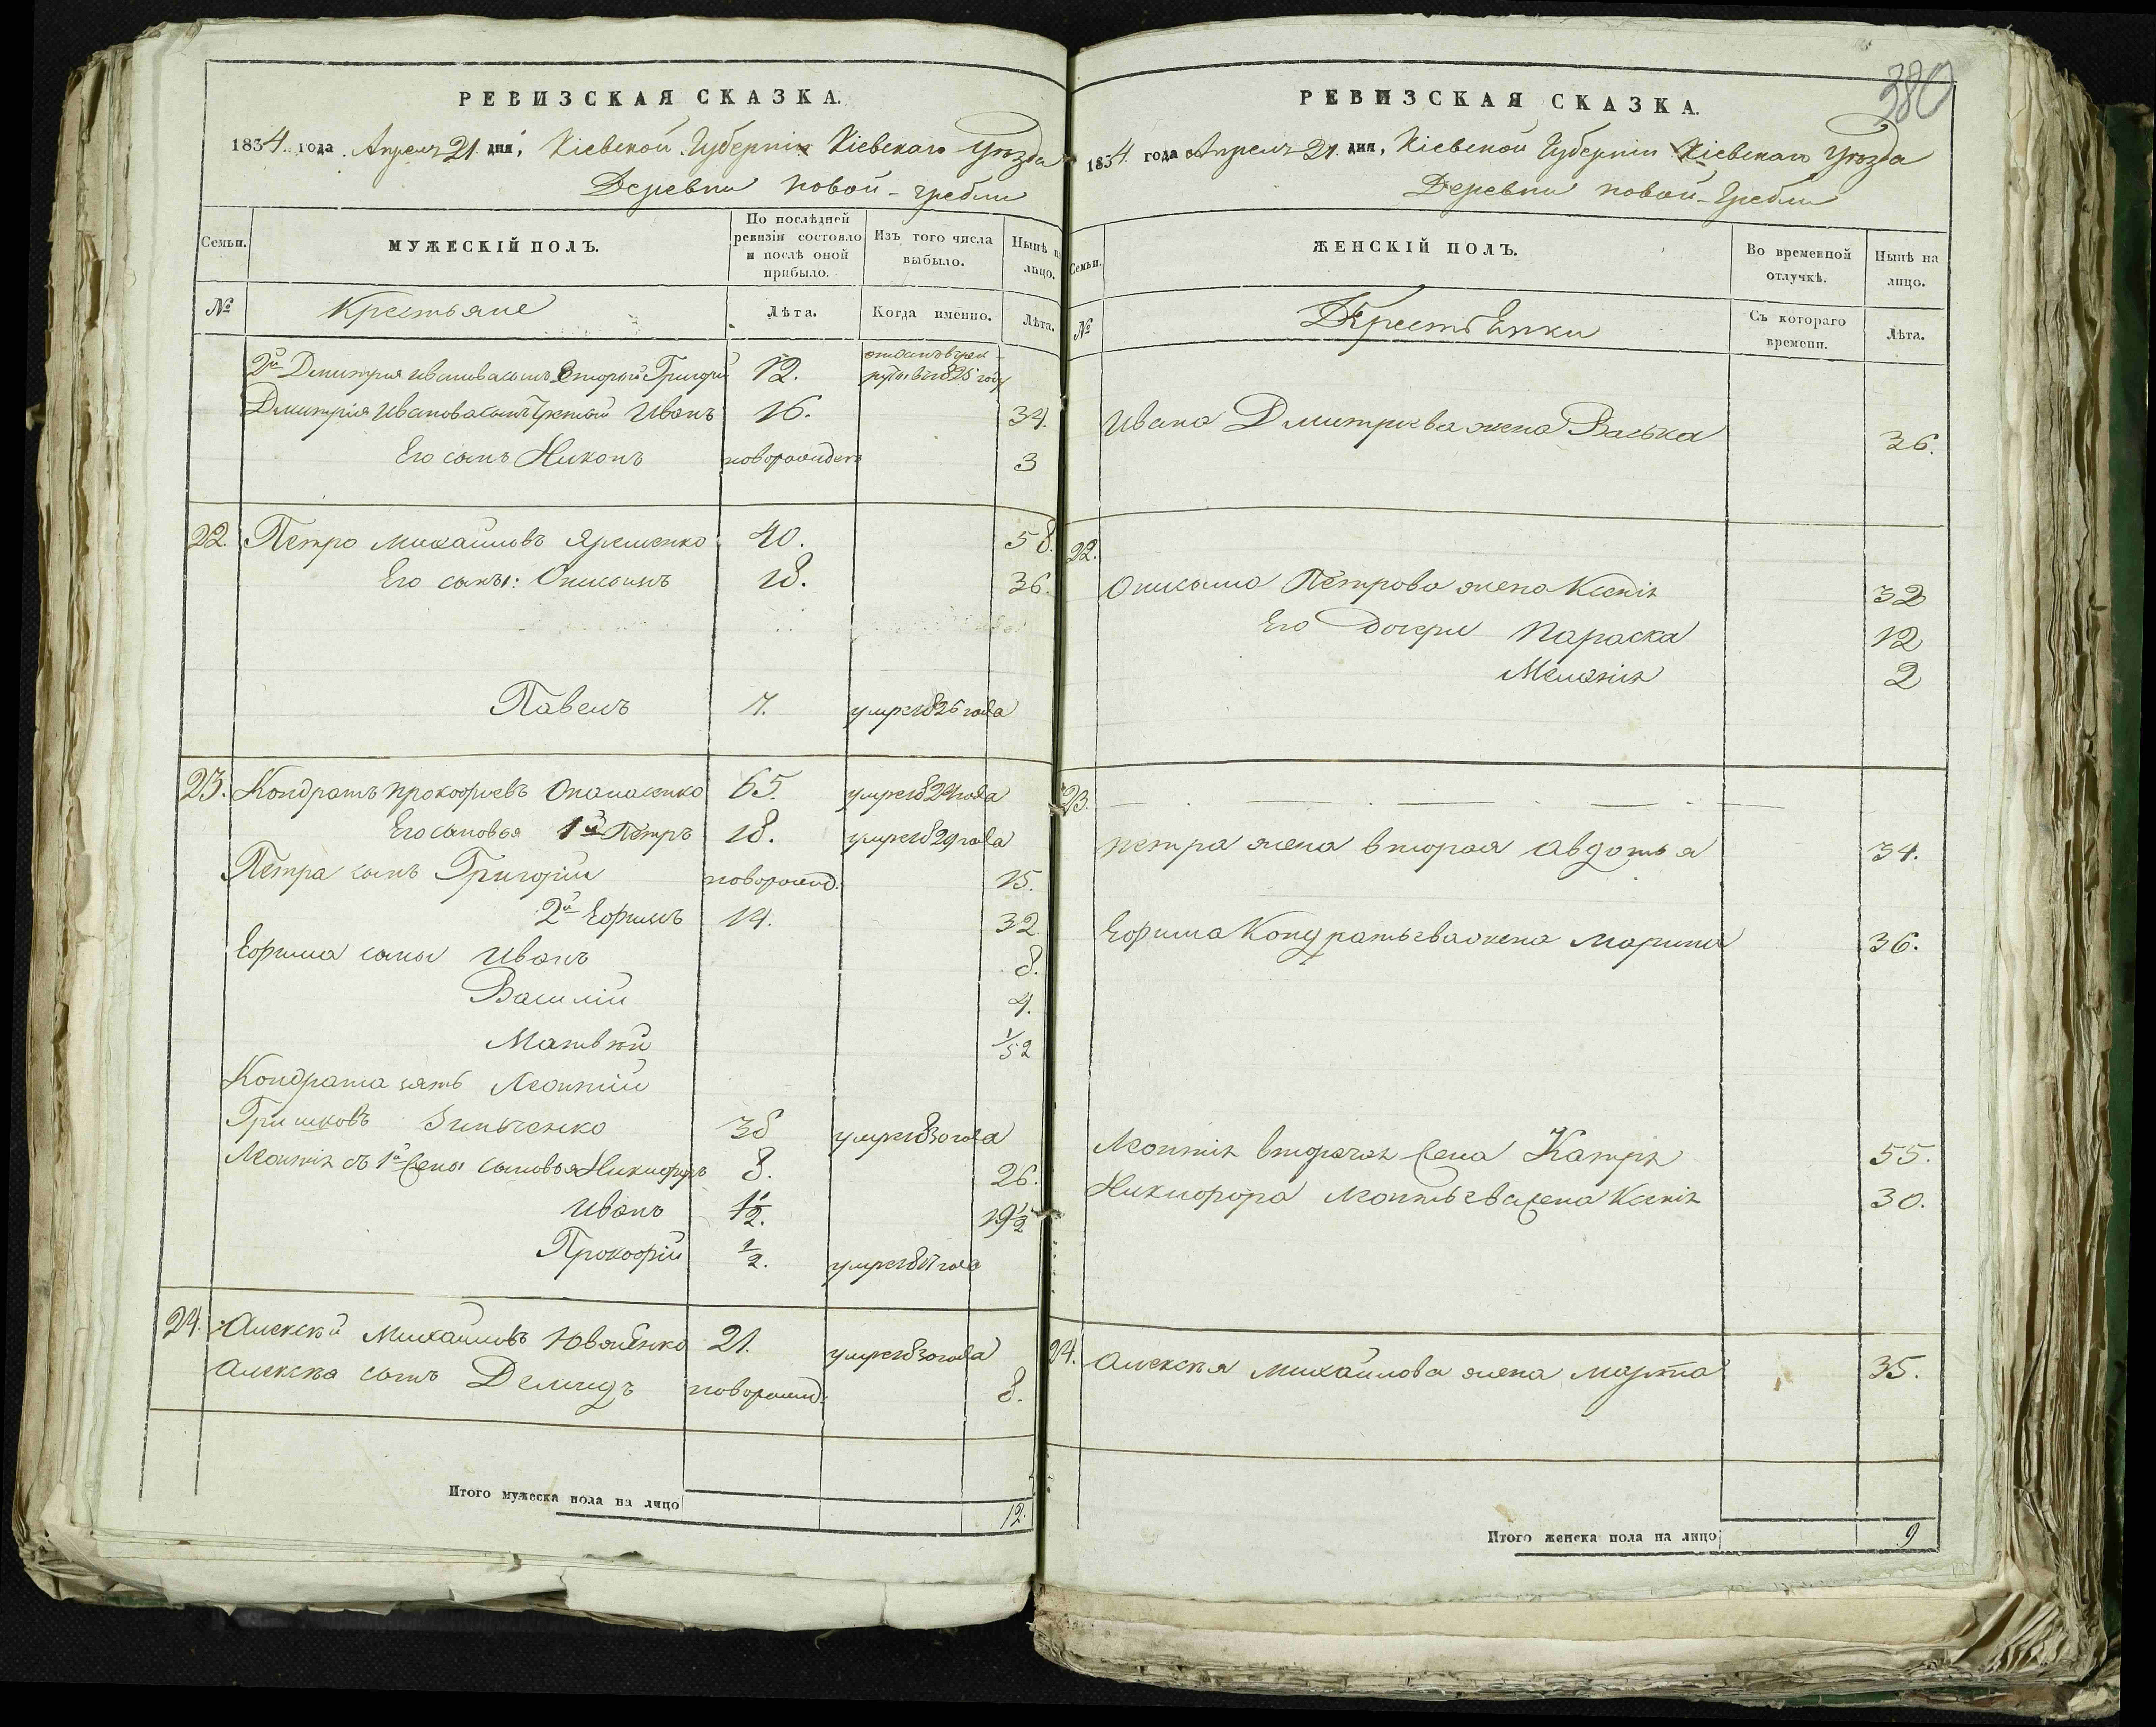 РЕВИЗСКАЯ СКАЗКА.
1834. года Апреля 21. дня, Кіевской Губерніи Кіевскаго Уѣзда
Деревни новой-гребли
Семьи.
МУЖЕСКІЙ ПОЛЪ.
По послѣдней ревизіи состояло и послѣ оной прибыло.
Изъ того числа выбыло.
Нынѣ на лицо.
№
Крестьяне
Лѣта.
Когда именно.
Лѣта.
2й Дмитрия иванова сынъ второй Григорій 12. отданъ в рекруты в 1825 году
Дмитрія Иванова сынъ третий Иванъ 16. 34.
Его сынъ Никонъ новорожден 3
22. Петро михайловъ Яременко 40. 58.
Его сынъ: Онисимъ 18. 36.
Павелъ 7. умре 1826 года
23. Кондратъ прокофиевъ Опанасенко 65. умре 1824 года
Его сыновья 1й Петръ 18. умре 1829 года
Петра сынъ Григорій новорожд. 15.
2й Ефимъ 14. 32.
Ефима сыны Иванъ 8.
Василій 4.
Матвѣй 1/52
Кондрата зять Леонтій
Гришковъ Зинченко 38 умре 1830 года
Леонтія съ 1й жены сыновья Никифоръ 8. 26.
Иванъ 1 1/2. 19 1/2
Прокофій 1/2. умре 1817 года
24. Алексѣй Михайловъ 21. умре 1830 года
Алексѣя сынъ Демидъ новорожд. 8.
Итого мужеска пола на лицо 12.
380
РЕВИЗСКАЯ СКАЗКА.
1834. года Апреля 21. дня, Кіевской Губерніи Кіевскаго Уѣзда
Деревни новой-Гребли
Семьи.
ЖЕНСКІЙ ПОЛЪ.
Во временной отлучкѣ.
Нынѣ на лицо.
№
Съ котораго времени.
Лѣта.
Ивана Дмитриева жена Васька 36.
22.
Онисима Петрова жена Ксенія 32
Его дочери Параска 12
Меланія 2
23.
петра жена вторая авдотья 34.
Ефима Кондратьева жена марина 36.
Леонтія вторая жена Катря 55.
Никифора Леонтьева жена Ксенія 30.
24. Алексѣя михайлова жена марта 35.
Итого женска пола на лицо 9